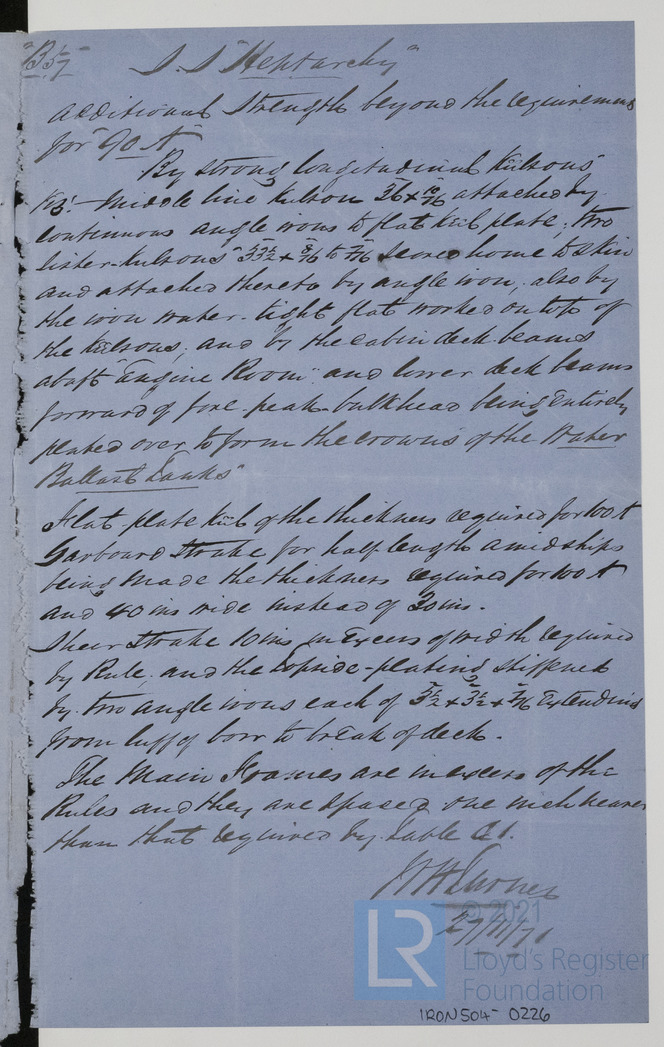 S.S "Heptarchy"
additional strength beyond the requirements
for "90 A"
By strong longitudinal Keelsons
Middle line Kelson 36 x 10/16 attached by
continuous angle irons to flat keel plate; two
sister-kelsons 33½ x 8/16 to 7/16 scored home to skin
and attached thereto by angle iron, also by
the iron water-tight flat worked on top of
the Keelsons, and by the cabin deck beams
abaft Engine Room and lower deck beams
forward of fore-peak-bulkhead being Entirely
plated over to form the crowns of the Water
Ballast Tanks"
Flat-plate keel of the thickness required for 100 A
Garboard Strake for half length amidships
being made the thickness required for 100 A
and 40 ins wide instead of 30 ins.
Sheer Strake 10 ins in Excess of width required
by Rule and the topside-plating stiffened
by two angle irons each of 5½ x 3½ x 7/16 Extending
from luff of bow to break of deck.
The Main Frames are in excess of the
Rules and they are spaced one inch nearer
than that required by Table
27/11/71
© 2021
LR
Lloyd's Register
Foundation
IRON504-0226